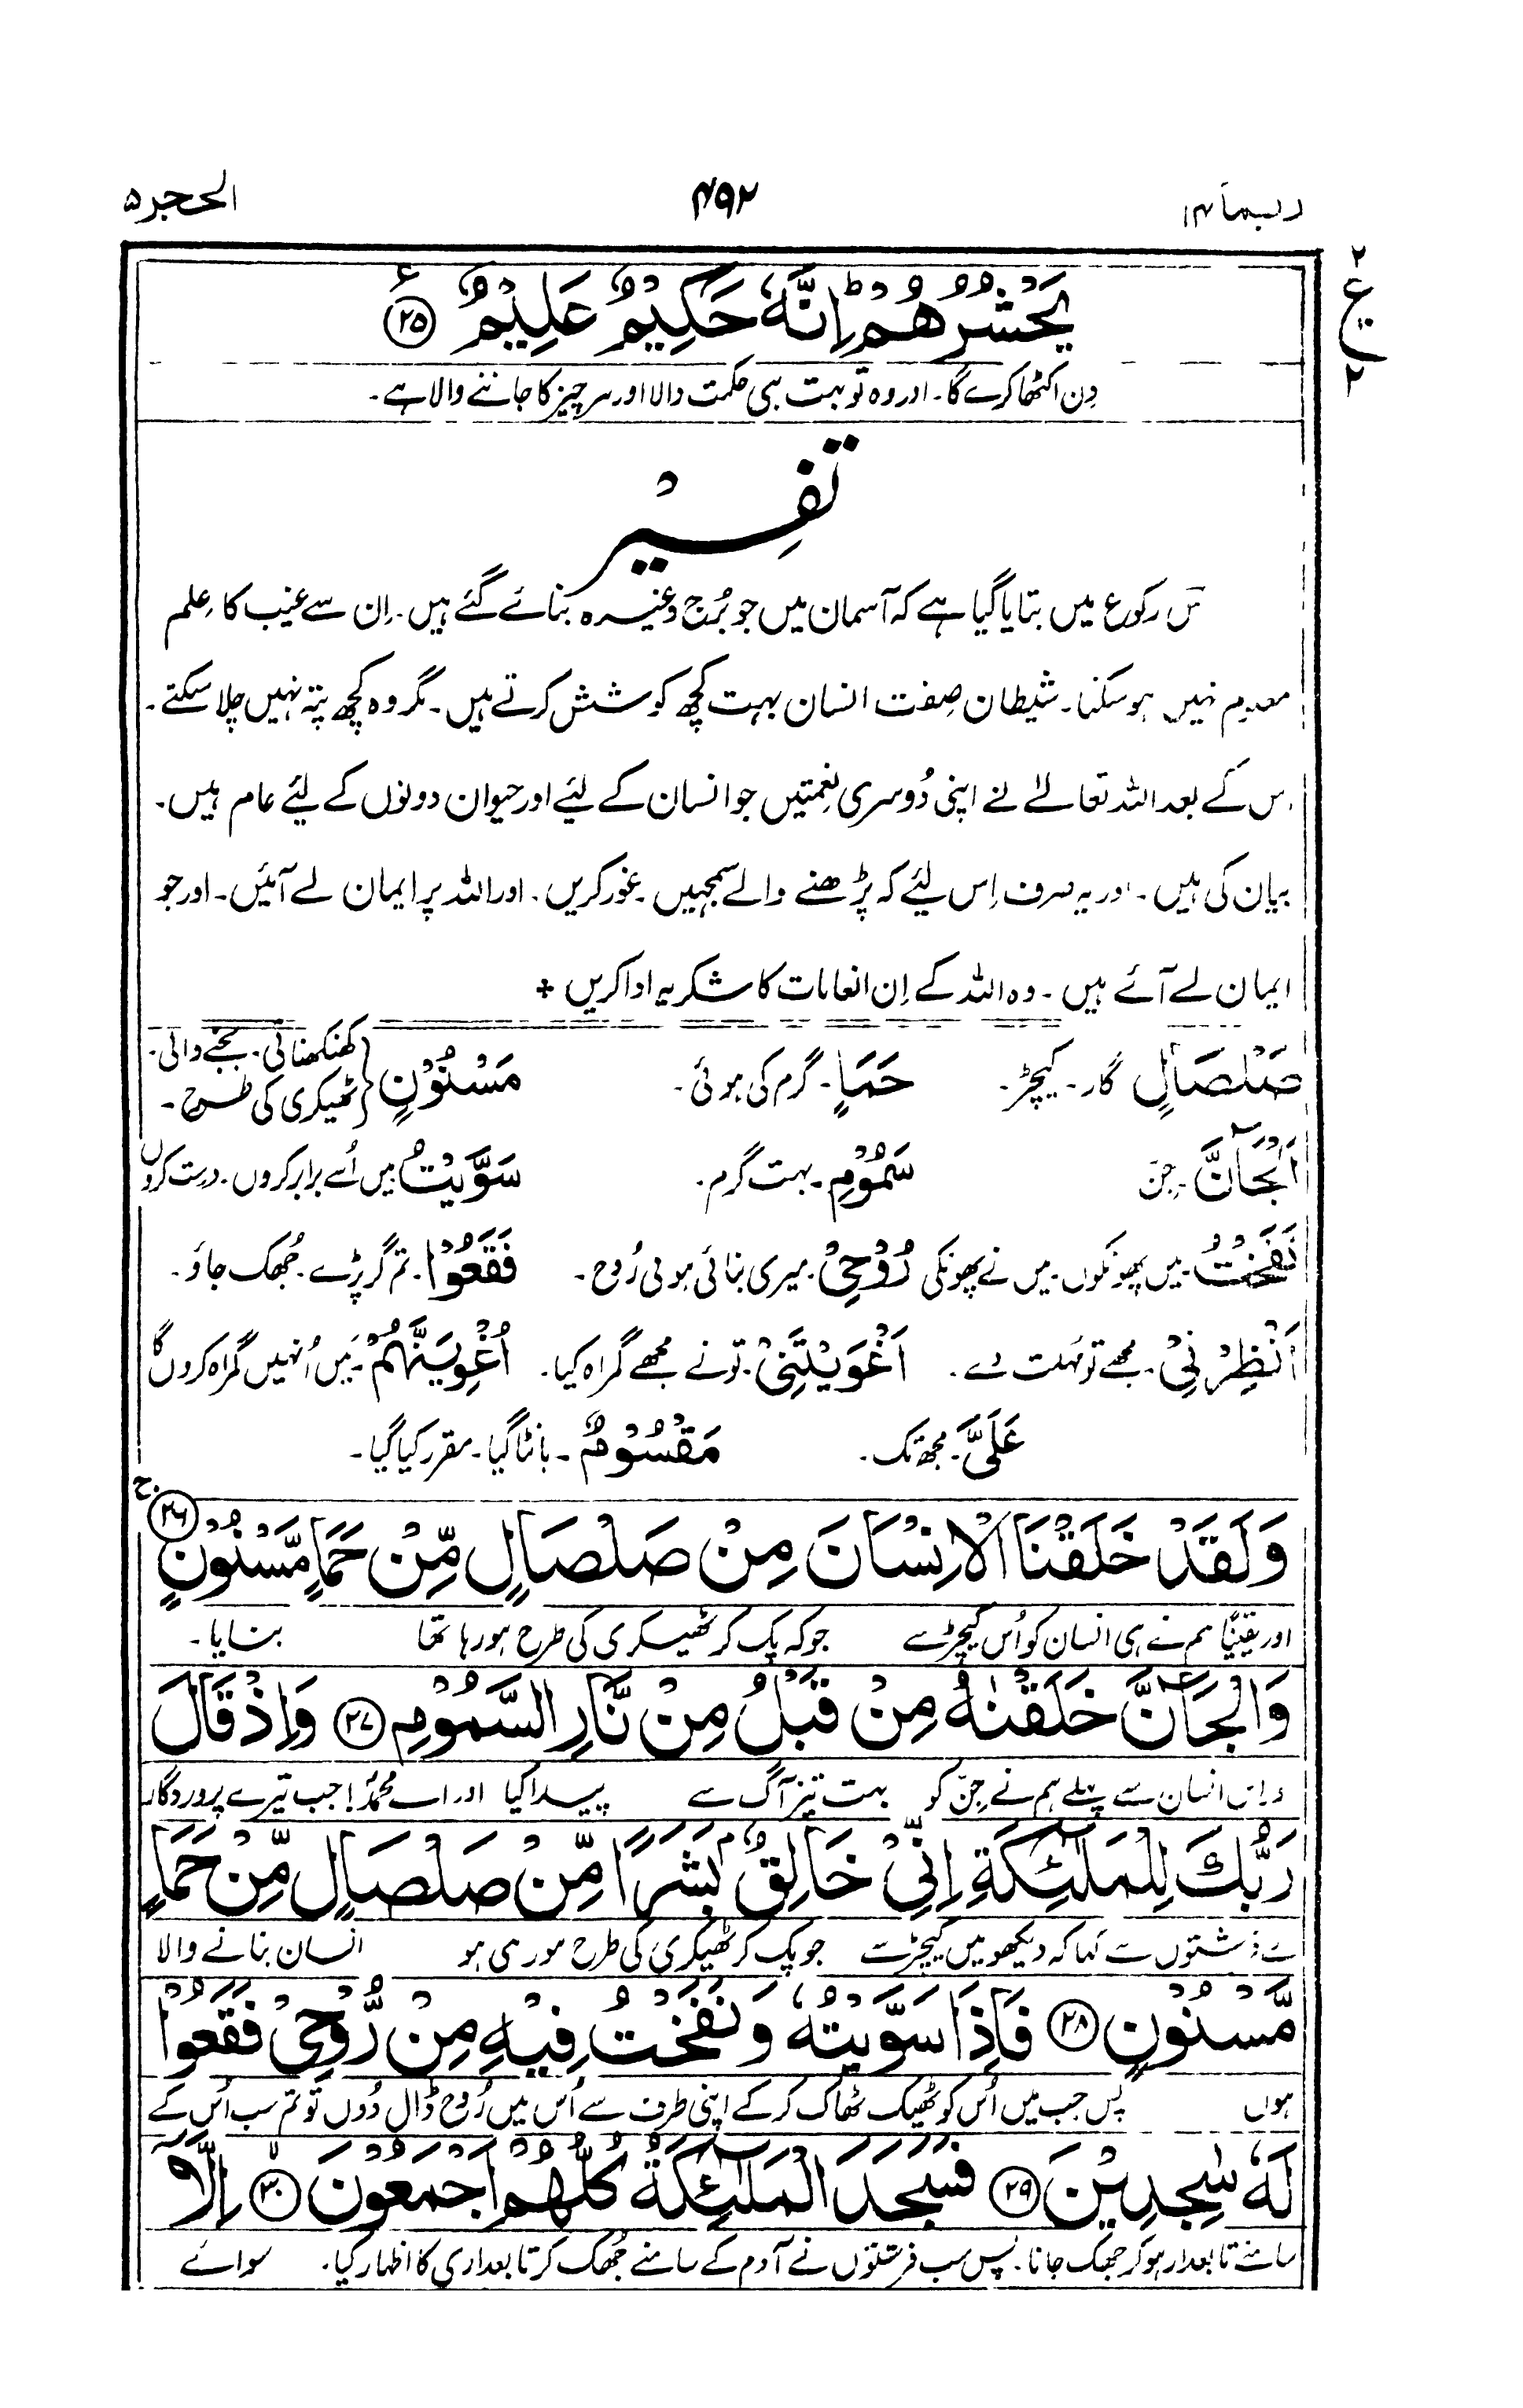 ربما ۱۴
۴۹۲
الحجر ۵
۲
ع
۲
يَحْشُرُهُمْ ؕ اِنَّهٗ حَكِيْمٌ عَلِيْمٌ ۲۵ ع
دِن اکٹھا کرے گا۔ اور وہ تو بہت ہی حکمت والا اور ہر چیز کا جاننے والا ہے۔
تفسِیْر
س رکوع میں بتایا گیا ہے کہ آسمان میں جو بُرج وغیرہ بنائے گئے ہیں۔ اِن سے غیب کا عِلم
معلوم نہیں ہو سکتا۔ شیطان صِفت انسان بہت کچھ کوشش کرتے ہیں۔ مگر وہ کچھ پتہ نہیں چلا سکتے۔
س کے بعد اللہ تعالےٰ نے اپنی دُوسری نِعمتیں جو انسان کے لئے اور حیوان دونوں کے لئے عام ہیں۔
بیان کی ہیں۔ اور یہ صرف اِس لیئے کہ پڑھنے والے سمجہیں۔ غور کریں۔ اور اللہ پر ایمان لے آئیں۔ اور جو
ایمان لے آئے ہیں۔ وہ اللہ کے اِن انعامات کا شکریہ ادا کریں +
صَلْصَالٍ گار۔ کیچڑ۔ حَمَاٍ۔ گرم کی ہوئی۔ مَسْنُوْنٍ { کھنکھناتی۔ بجنے والی۔ ٹھیکری کی طرح۔
اَلْجَآنَّ۔ جِنّ سَمُوْمِ۔ بہت گرم۔ سَوَّيْتُ میں اُسے برابر کروں۔ درست کروں
نَفَخْتُ۔ میں پھونکوں۔ میں نے پھونکی رُوْحِيْ۔ میری بنائی ہوئی رُوح۔ فَقَعُوْا۔ تم گر پڑے۔ جُھک جاؤ۔
اَنْظِرْنِيْ۔ مجھے تو مُہلت دے۔ اَغْوَيْتَنِيْ۔ تونے مجھے گمراہ کیا۔ اُغْوِيَنَّهُمْ۔ میں اُنہیں گمراہ کروں گا
عَلَيَّ۔ مجھ تک۔ مَقْسُوْمٌ۔ بانٹا گیا۔ مقرر کیا گیا۔
وَلَقَدْ خَلَقْنَا الْاِنْسَانَ مِنْ صَلْصَالٍ مِّنْ حَمَاٍ مَّسْنُوْنٍ ۲۶ ج
اور یقیناً ہم نے ہی انسان کو اُس کیچڑ سے جو کہ پک کر ٹھیکری کی طرح ہو رہا تھا بنایا۔
وَالْجَآنَّ خَلَقْنٰهُ مِنْ قَبْلُ مِنْ نَّارِ السَّمُوْمِ ۲۷ وَاِذْ قَالَ
اِس انسان سے پہلے ہم نے جِنّ کو بہت تیز آگ سے پیدا کیا اور اے محمدؐ! جب تیرے پروردگار
رَبُّكَ لِلْمَلٰٓئِكَةِ اِنِّيْ خَالِقٌۢ بَشَرًا مِّنْ صَلْصَالٍ مِّنْ حَمَاٍ
نے فرشتوں سے کہا کہ دیکھو میں کیچڑ سے جو پک کر ٹھیکری کی طرح ہو رہی ہو انسان بنانے والا
مَّسْنُوْنٍ ۲۸ فَاِذَا سَوَّيْتُهٗ وَنَفَخْتُ فِيْهِ مِنْ رُّوْحِيْ فَقَعُوْا
ہوں پس جب میں اُس کو ٹھیک ٹھاک کر کے اپنی طرف سے اُس میں رُوح ڈال دُوں تو تم سب اُس کے
لَهٗ سٰجِدِيْنَ ۲۹ فَسَجَدَ الْمَلٰٓئِكَةُ كُلُّهُمْ اَجْمَعُوْنَ ۳۰ ۙ اِلَّآ
سامنے تابعدار ہو کر جھک جانا۔ پس سب فرشتوں نے آدم کے سامنے جُھک کر تابعداری کا اظہار کیا۔ سوائے